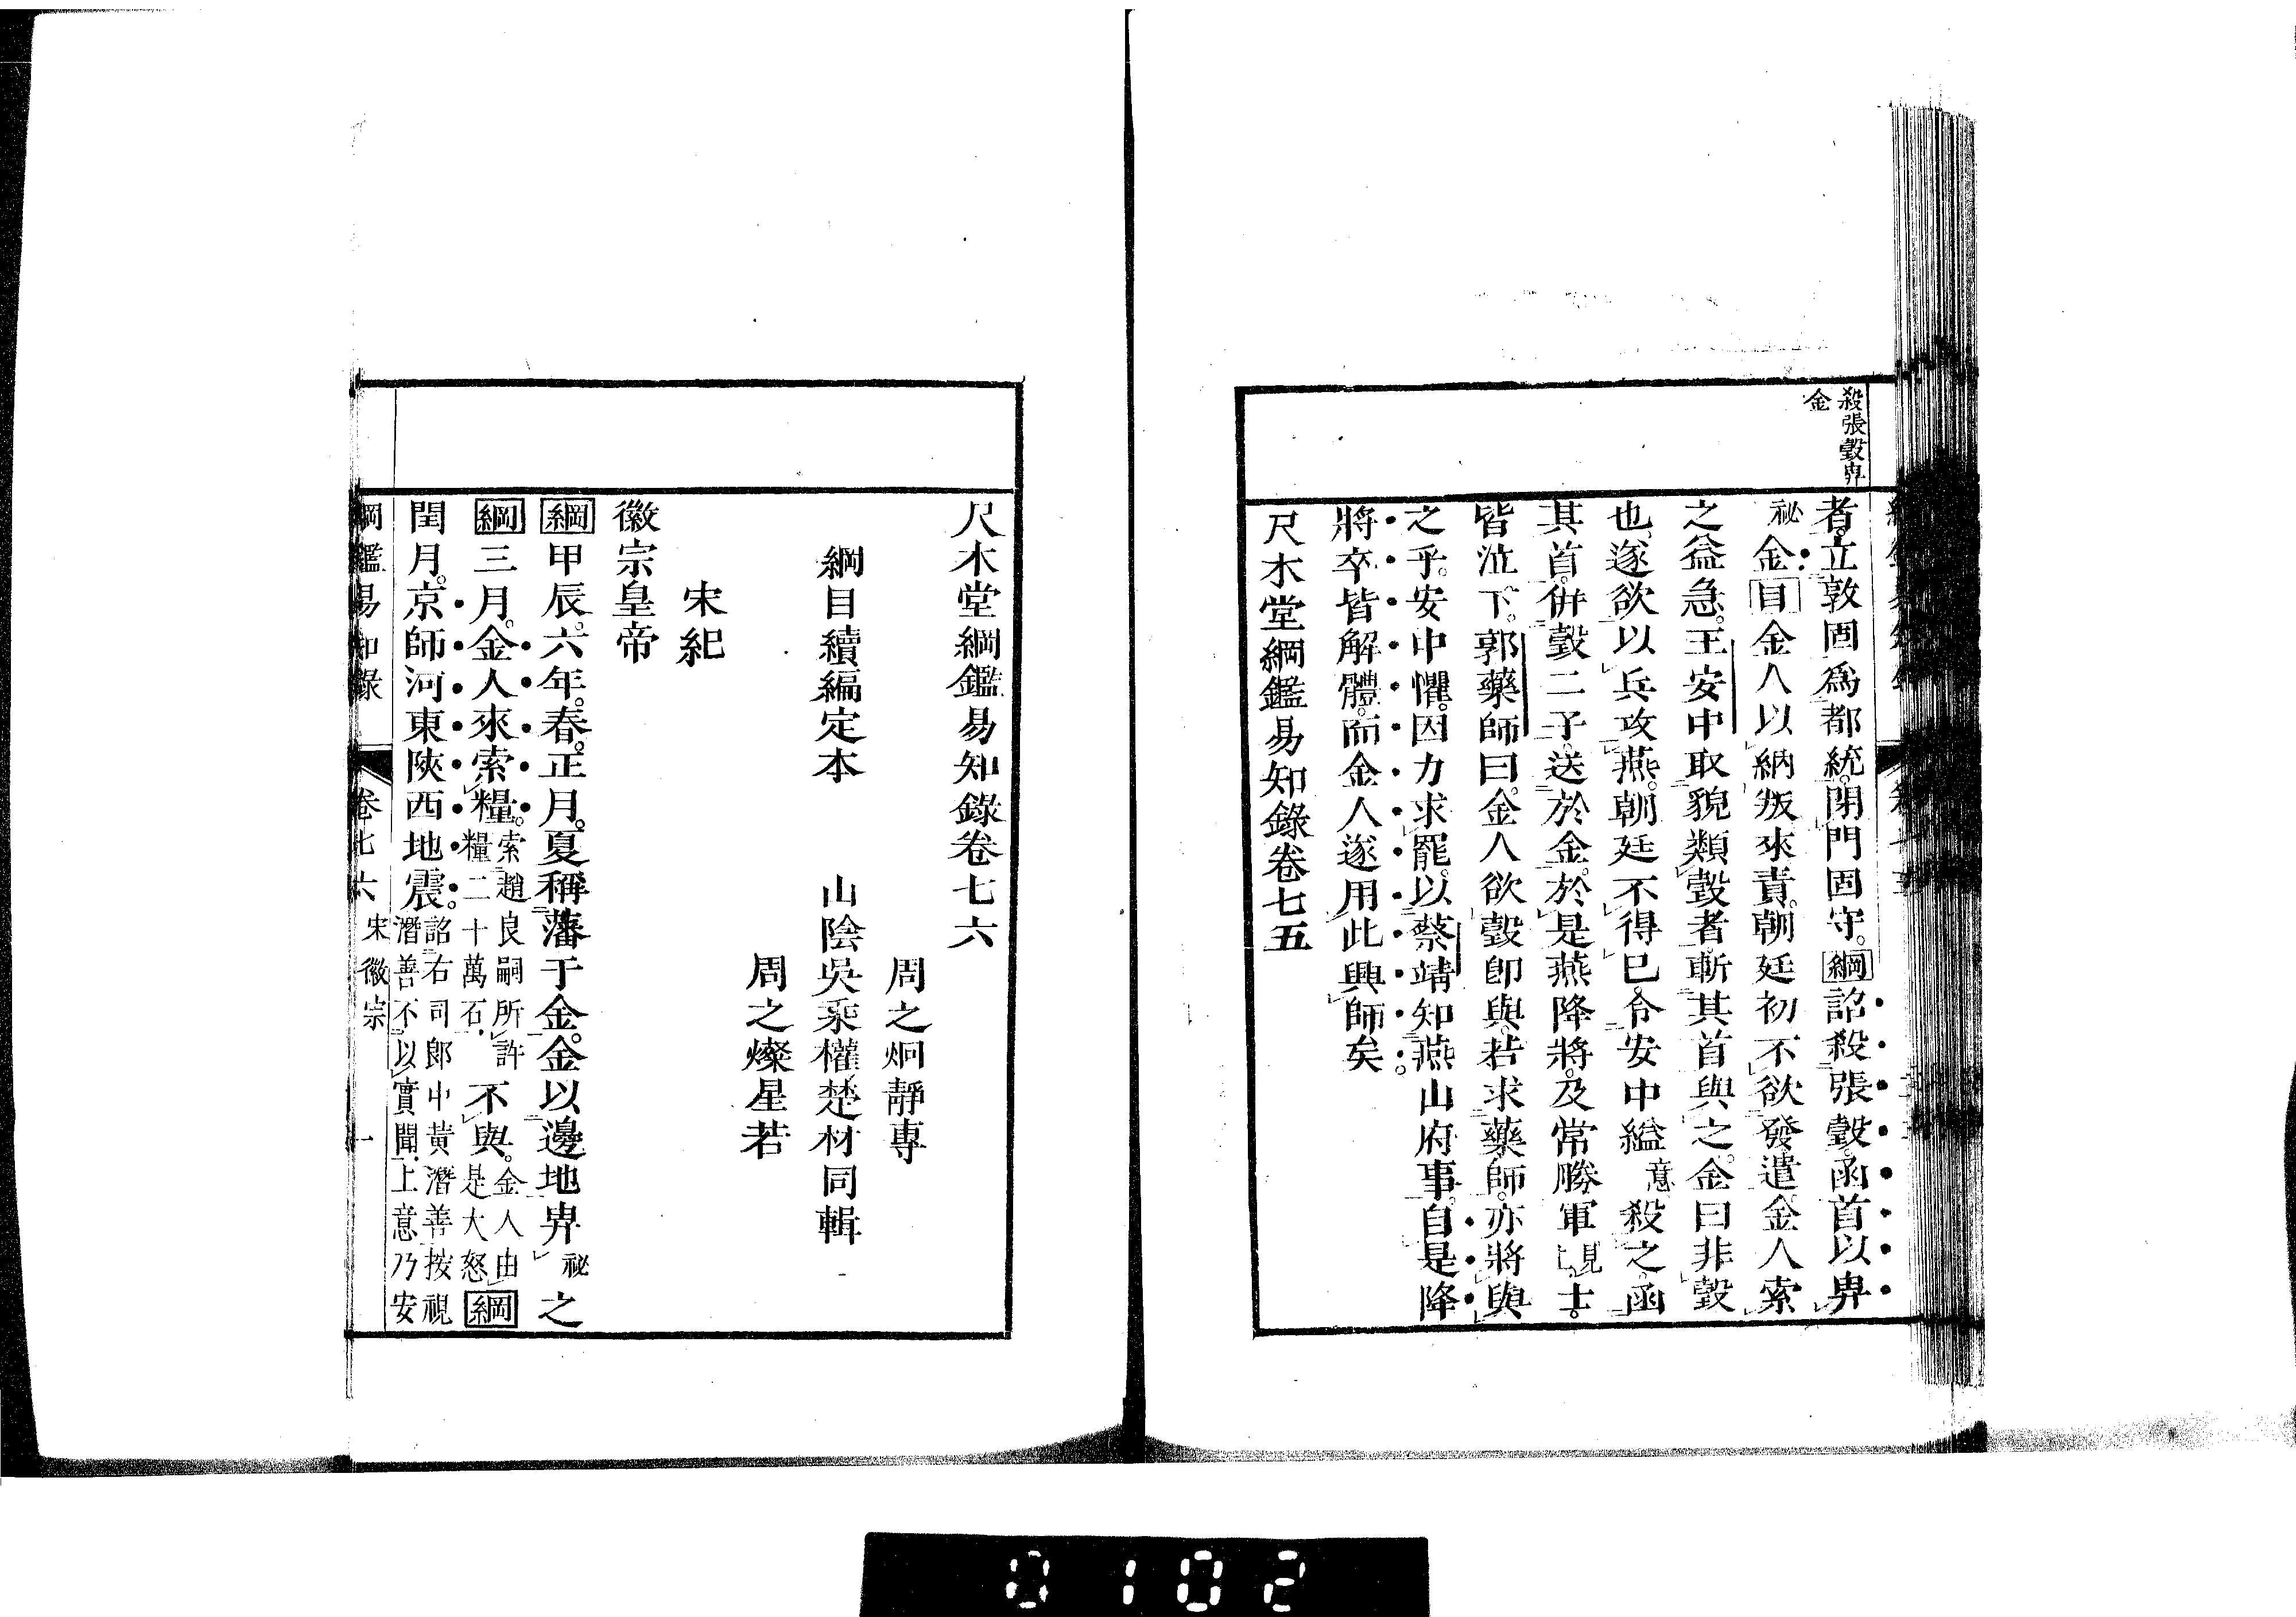 殺張瑴畀
金
者。立敦固爲都統。閉門固守。綱詔殺張瑴。函首以畀
祕金目金人以納叛來責。朝廷初不欲發遣。金人索
之益急。王安中取貌類瑴者。斬其首與之。金曰非瑴
也。遂欲以兵攻燕。朝廷不得已。令安中縊意殺之。函
其首。併瑴二子。送於金。於是燕降將。及常勝軍見上。士。
皆泣下。郭藥師曰。金人欲瑴卽與。若求藥師。亦將與
之乎。安中懼。因力求罷。以蔡靖知燕山府事。自是降
將卒皆解體。而金人遂用此興師矣。
尺木堂綱鑑易知錄卷七五
尺木堂綱鑑易知錄卷七六
周之炯靜專
綱目續編定本 山陰吳乘權楚材同輯
周之燦星若
宋紀
徽宗皇帝
綱甲辰。六年。春。正月。夏稱藩于金。金以邊地畀祕之
綱三月。金人來索糧。索趙良嗣所許糧二十萬石。不與。金人由是大怒綱
閏月。京師河東陝西地震。詔右司郎中黃潛善按視潛善不以實聞。上意乃安
綱鑑易知錄 卷七六 宋徽宗 一
0102